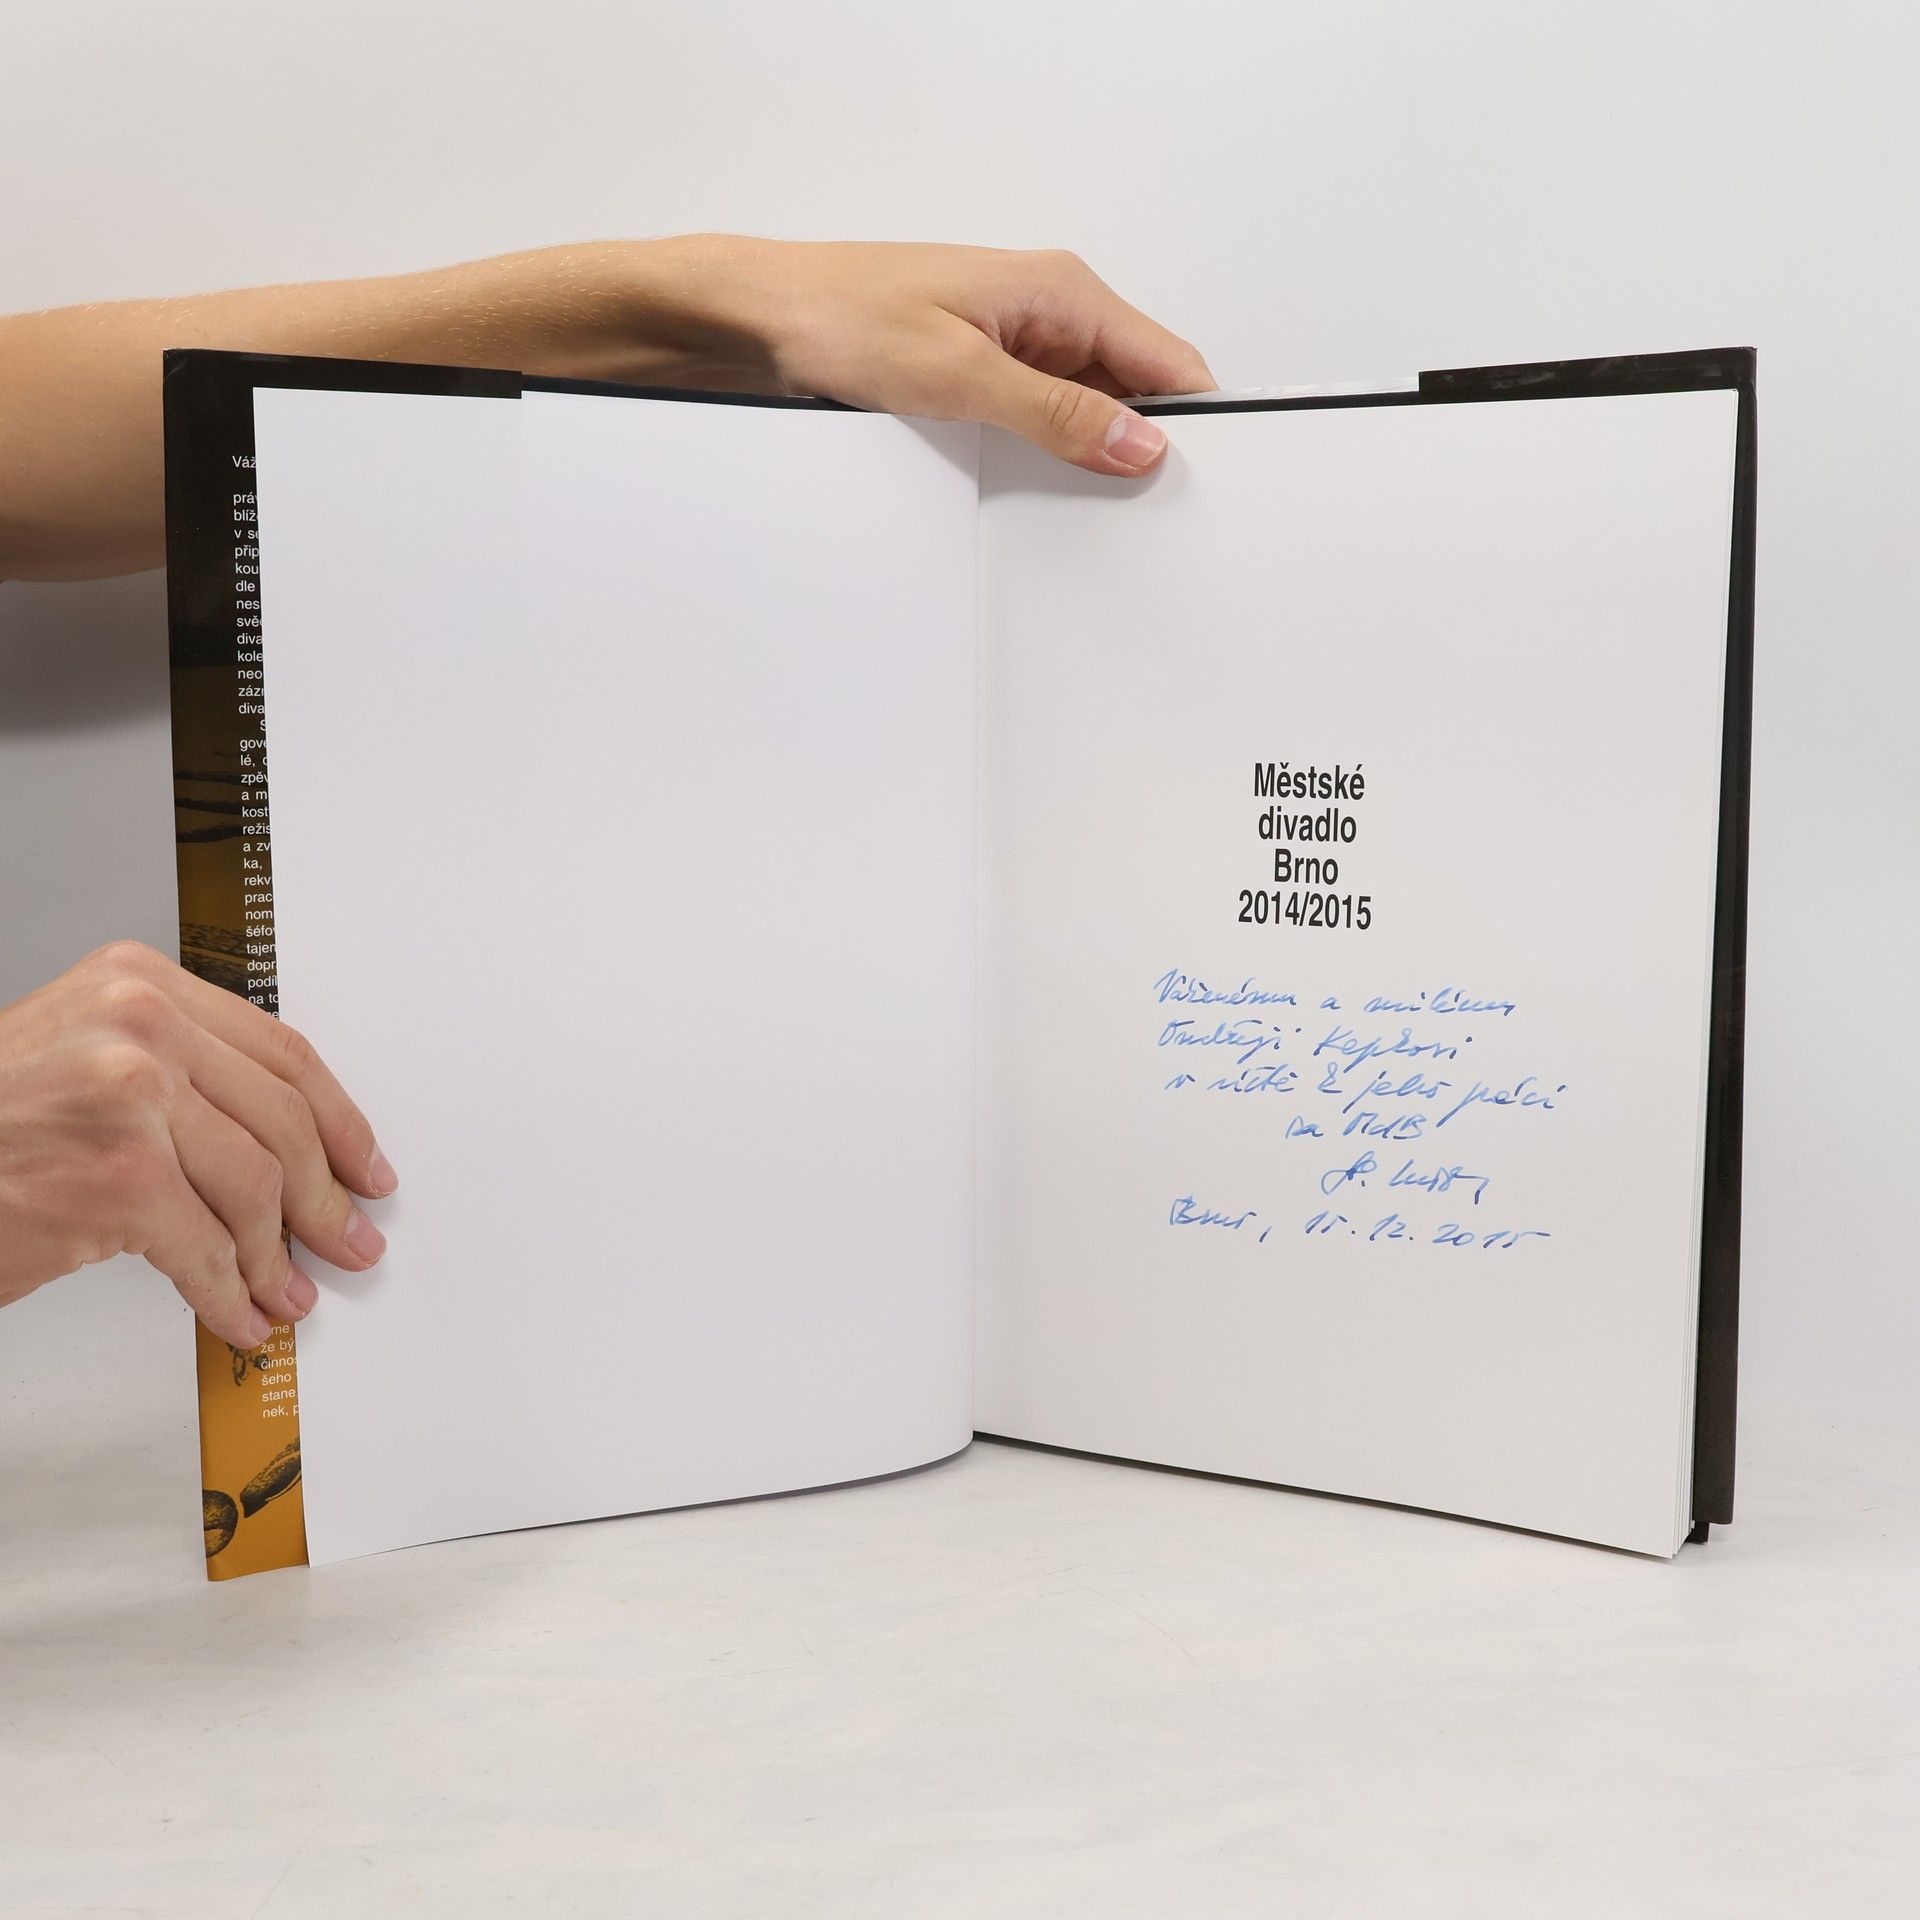 Váž
práv
blíž
v se
přip
kou
dle
nes
svě
diva
kole
neo
zázr
diva
S
gove
lé, c
zpěv
a m
kost
režis
a zv
ka,
rekv
prac
nom
šéfo
tajem
dopr
podíl
na to
me
že bý
činnos
šeho
stane.
nek, p
Městské
divadlo
Brno
2014/2015
Váženému a milému
Ondřeji Kepkovi
v úctě k jeho práci
za MdB
Brno, 15.12.2015